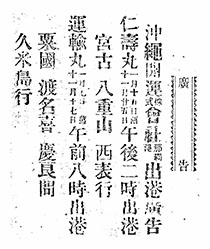 廣告
沖繩開運株式會社那覇出港廣告
仁壽丸十一月廿五日午後二時出港
宮古 八重山 西表行
運輸丸十一月十七日午前八時出港
粟國 渡名喜 慶良間
久米島行